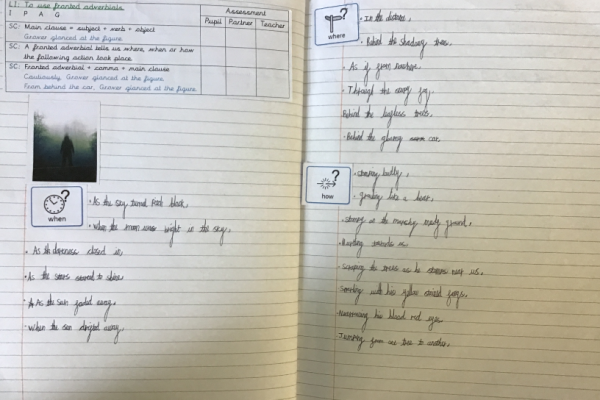 LI: To use fronted adverbials
I P A G
Assessment
Pupil Partner Teacher
SC: Main clause = subject + verb + object
Graver glanced at the figure.
SC: A fronted adverbial tells us where, when or how the following action took place
SC: Fronted adverbial + comma + main clause
Cautiously, Graver glanced at the figure.
From behind the car, Graver glanced at the figure.
when
• As the sky turned Pitch black,
• When the moon was bright in the sky,
• As the darkness closed in,
• As the stars started to shine
• As the sun faded away,
• When the sun drifted away
where
• In the distance,
• Behind the shadowy trees,
• As if from nowhere.
• Through the foggy,
Behind the leafless trees,
• Behind the car,
how
• badly,
• like a bear,
• in the muddy ground,
towards me
the trees as he stares near us.
with his yellow fangs,
his blood red eyes
• Jumping from one tree to another,